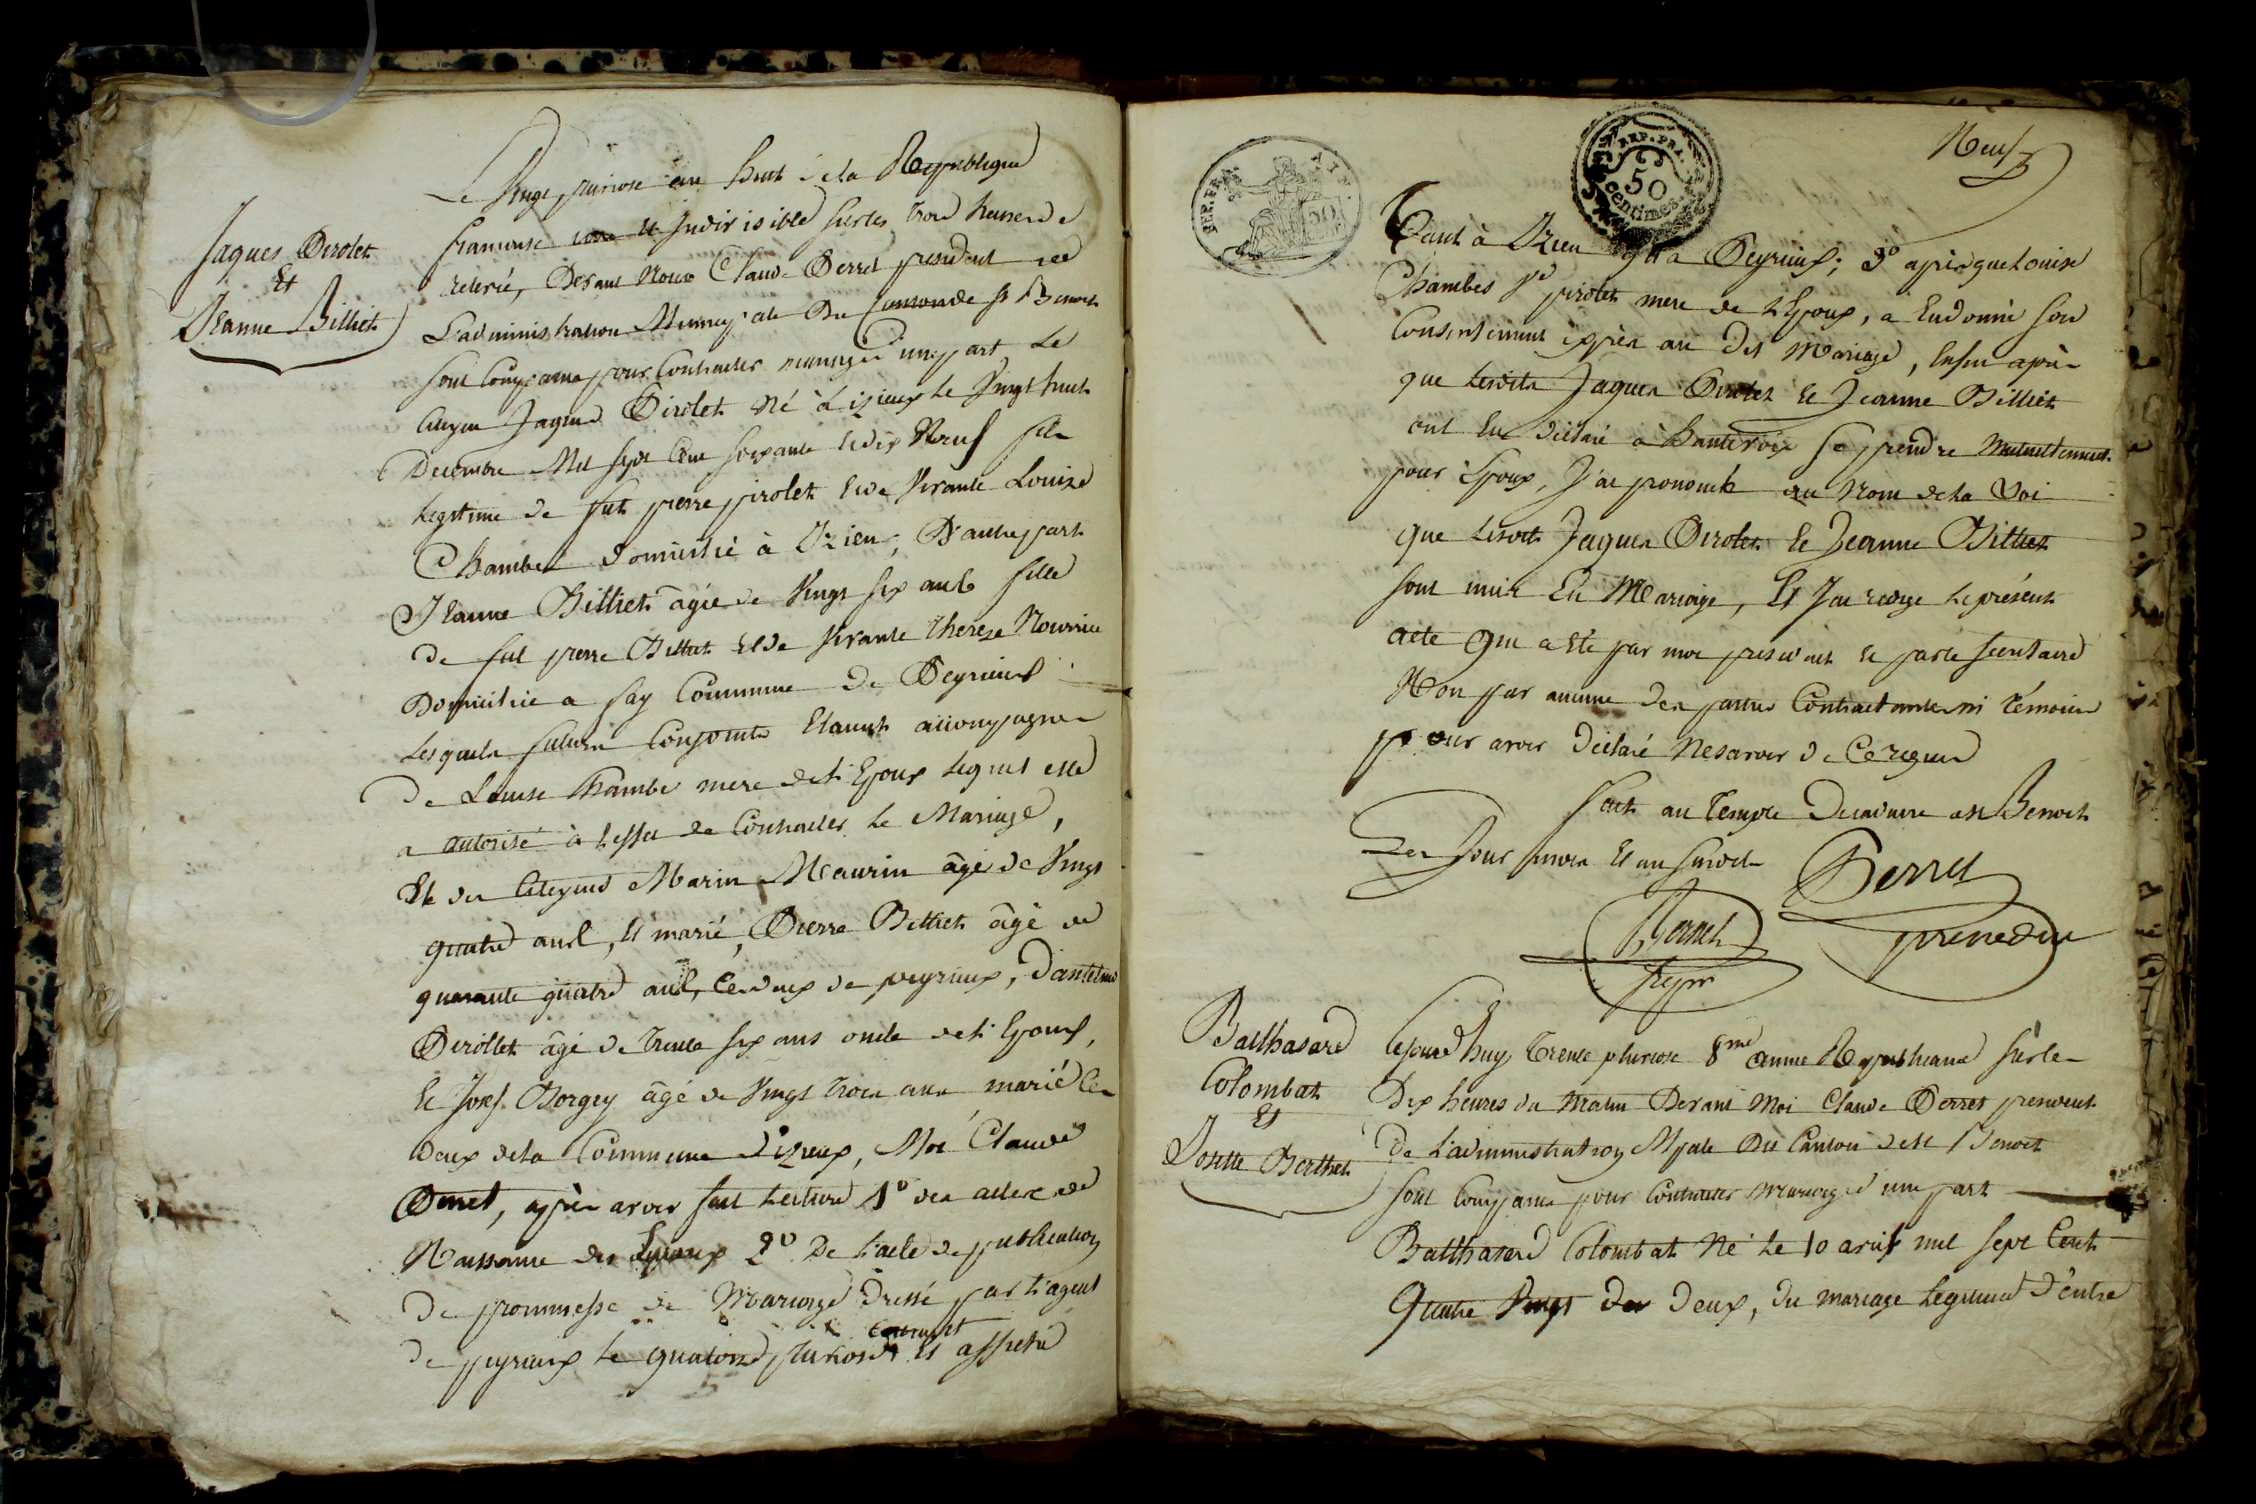 Jaques Pirolet
Et
Jeanne Billiet
Le Vingt pluviose an huit de la Republique
francaise une et Indivisible sur les trois heures de
relevée, Devant Nous Claude Perret president de
L'administration Municipale Du Canton de St Benoit
sont Comparus pour Contracter mariage d'une part Le
Citoyen Jaques Pirolet Né à Izieux le Vingt huit
Decembre Mil sept Cent soixante et dix Neuf fils
Legitime de fut pierre pirolet et de Vivante Louise
Chambe domicilié à Izieu; D'autre part
Jeanne Billiet âgée de Vingt six ans fille
de fut pierre Billiet et de Vivante therese Nourrice
Domiciliée a fay Commune de Peyrieux
Lesquels futurs Conjoints Etants accompagnes
de Louise Chambe mere de l'Epoux lequel elle
a autorisé à l'effet de Contracter le Mariage,
Et des Citoyens Marin Maurin âgé de Vingt
quatre ans, et marié, Pierre Billiet âgé de
quarante quatre ans, Ces deux de peyrieux, Dantelme
Pirollet âgé de Trente six ans oncle de l'Epoux,
et Josep. Borgey âgé de Vingt trois ans marié Ces
deux de la Commune d'izieux, Moi Claude
Perret, après avoir fait Lecture 1° des actes de
Naissance des Epoux 2° De l'acte de publication
De promesse de Mariage dressé par l'agent
de peyrieux le quatorze pluviose courant Et affiché
Neuf
REP. FRA.
50
REP. FRA.
50
centimes
Tant à Izieu qu'a Peyrieux; 3° après que Louise
Chambes Ve pirolet mere de L'Epoux, a Eu donné son
Consentement exprès au dit Mariage, Enfin après
que Lesdits Jaques Pirolet et Jeanne Billiet
ont Eu declaré à hautevoix se prendre Mutuellement
pour Epoux, J'ai prononcé au Nom de la Loi
que Lesdits Jaques Pirolet et Jeanne Billiet
sont unis En Mariage, Et J'ai redigé le présent
acte qui a Eté par moi president et par le secretaire
Non par aucune des parties Contractantes ni témoins
pour avoir declaré Ne savoir de Ce requis
Fait au Temple Decadaire a St Benoit
Les Jour mois Et an susdits
Perret
president
Le Jourd'huy Trente pluviose 8me année Republicaine sur les
Dix heures du Matin Devant Moi Claude Perret president
De L'administration Mpale Du Canton de St Benoit
sont Comparus pour Contracter Mariage d'une part
Balthasard Colombat Né le 10 avril mil sept Cent
Quatre Vingt Deux, du mariage Legitime d'entre
Balthasard
Colombat
Et
Josette Berthet